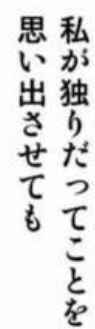 私が独りだってことを
思い出させても